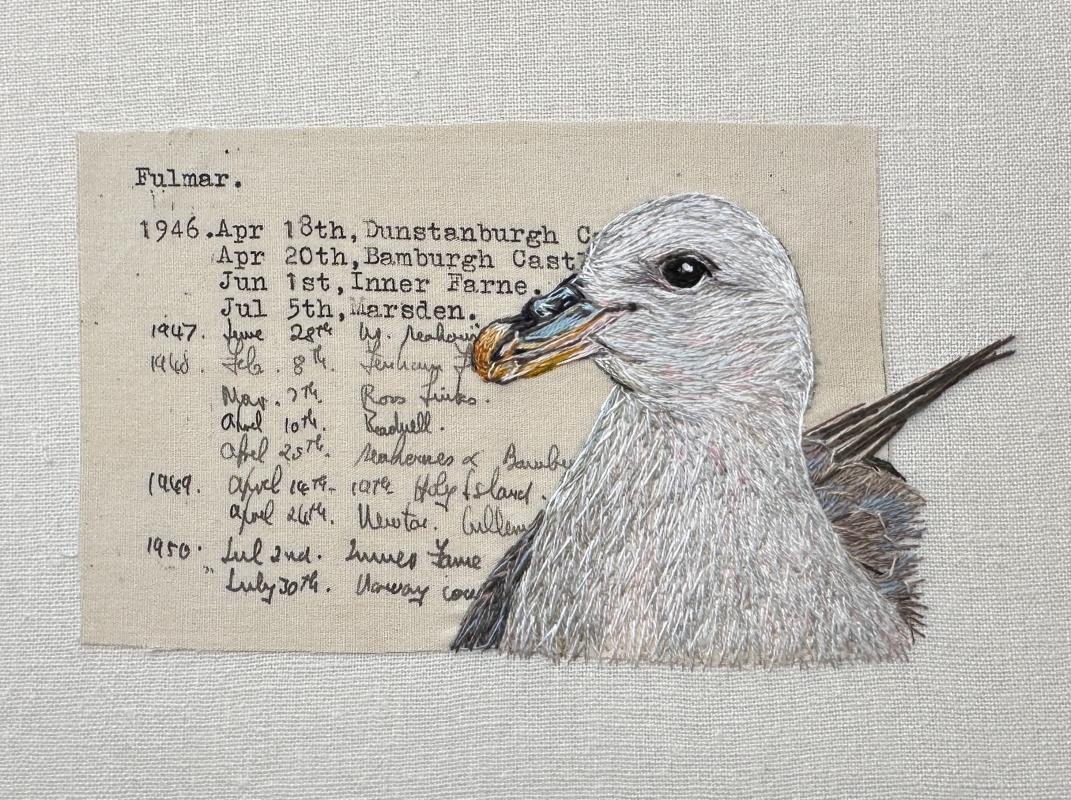 Fulmar.
1946.Apr 18th,Dunstanburgh C
Apr 20th,Bamburgh Castl
Jun 1st,Inner Farne.
Jul 5th,Marsden.
1947. June 28th
1948. Feb. 8th. Fenham
Mar. 7th. Ross Links.
April 10th. Beadnell.
April 25th. Seahouses & Bambu
1949. April 14th- 19th Holy Island.
April 24th. Newton.
1950. Jul 2nd. Farne
" July 30th. Norway